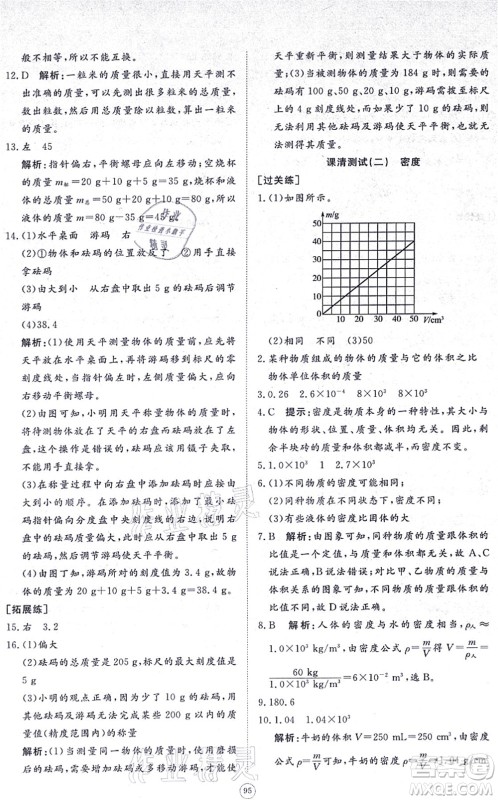 般不相等，所以不能互换。
12.D 解析：一粒米的质量很小，直接用天平测不出准确的质量，可以先测出很多米的总质量，数出数量，然后用总质量除以粒数，算出一粒米的质量。
13.左 45
解析：指针偏右，平衡螺母应向左移动；空烧杯的质量 m空=20 g+10 g+5 g=35 g，烧杯和液体的总质量 m总=50 g+20 g+10 g=80 g，则液体的质量 m液=80 g-35 g=45 g。
14.(1)水平桌面 游码 右
(2)①物体和砝码的位置放反了 ②用手直接拿砝码
(3)由大到小 从右盘中取下 5 g 砝码后调节游码
(4)38.4
解析：(1)使用天平测量物体的质量前，应先将天平放在水平桌面上，再将游码移到标尺的零刻度线处；若此时指针偏左，平衡螺母应向右移动。
(2)由图可知，小明用天平称量物体的质量时，将待测物体放在了天平的右盘，砝码放在了左盘，这是错误的，砝码应该用镊子夹取，不能直接用手拿取。
(3)应按由大到小的顺序向右盘中添加砝码，右盘中添加砝码时，若添加最小为 5 g 的砝码时指针偏向分度盘中央刻度线的右侧，此时表明砝码的质量偏大，应取下最小的砝码 5 g，然后调节游码使天平平衡。
(4)由图可知，游码对应的刻度值是 3.4 g，物体的质量为 35 g+3.4 g=38.4 g。
[拓展练]
15.右 3.2
16.(1)偏大
(2)砝码的总质量是 205 g，标尺的最大刻度是 5 g，因此最多能测的质量是 210 g
(3)小明的观点不正确，因为如果没有 5 g 以下的砝码，单靠移动游码无法完成大于 5 g 的任意质量值(精度范围内)的测量
解析：(1)当测量同一物体的质量时，使用磨损后的砝码，需要增加砝码或移动游码才能使
天平重新平衡，则测量结果大于物体的实际质量。(3)当被测物体的质量为 184 g 时，依次将砝码 100 g、50 g、20 g、10 g 放到右盘后，游码需要放在标尺 4 g 刻度线处，所以，如果没有 5 g 以下的砝码，则无法利用游码使天平平衡，也就无法测出质量。
课清测试(二) 密度
[过关练]
1.(1)如图所示。
m/g
50
40
30
20
10
0 10 20 30 40 50 V/cm³
(2)相同 不同 (3)50
2.某种物质组成的物体的质量与它的体积之比 物体单位体积的质量
3.0.26 2.6×10⁻⁴ 8×10³ 8×10³
4.C 提示：密度是物质本身的一种特性，其大小与物体的质量、体积无关，切去一块后，剩余半块砖的质量和体积都减小，但密度不变。
5.1.0×10³ 1 2.7×10³
6.(1)不同物质的密度可能相同；
(2)同种物质的密度可能不同；
(3)固体的密度不一定比液体的大
7.B 解析：相同物质的质量跟体积的关系图象的比值是定值，说明物质的密度不变，故 A、C、D 说法正确，B 说法错误；对于不同物质，质量跟体积关系的图象可知，不同物质的质量跟体积的比值一般不同，即不同物质的密度一般不同，D 说法正确。
8.B 解析：人体的密度与水的密度差不多，ρ人=1.0×10³ kg/m³，由密度公式 ρ=m/V 得 V=m/ρ人=60 kg/(1.0×10³ kg/m³)=6×10⁻² m³，选 B
9.180.6
10.1.04 1.04×10³
解析：牛奶的体积 V=250 mL=250 cm³，由密度公式 ρ=m/V 可知，牛奶的密度 ρ=m/V=
95